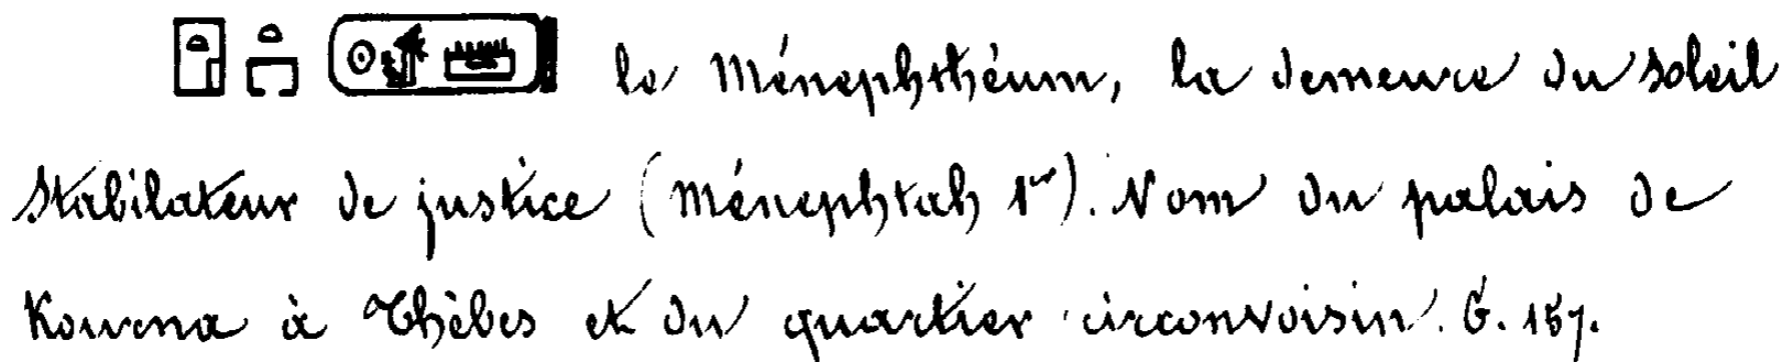 𓉗 𓏏𓉐 𓍹𓇳𓁦𓏠𓍺 le Ménephthéum, la demeure du soleil
stabilateur de justice (Ménephtah 1er). Nom du palais de
Kourna à Thèbes et du quartier circonvoisin. G. 157.